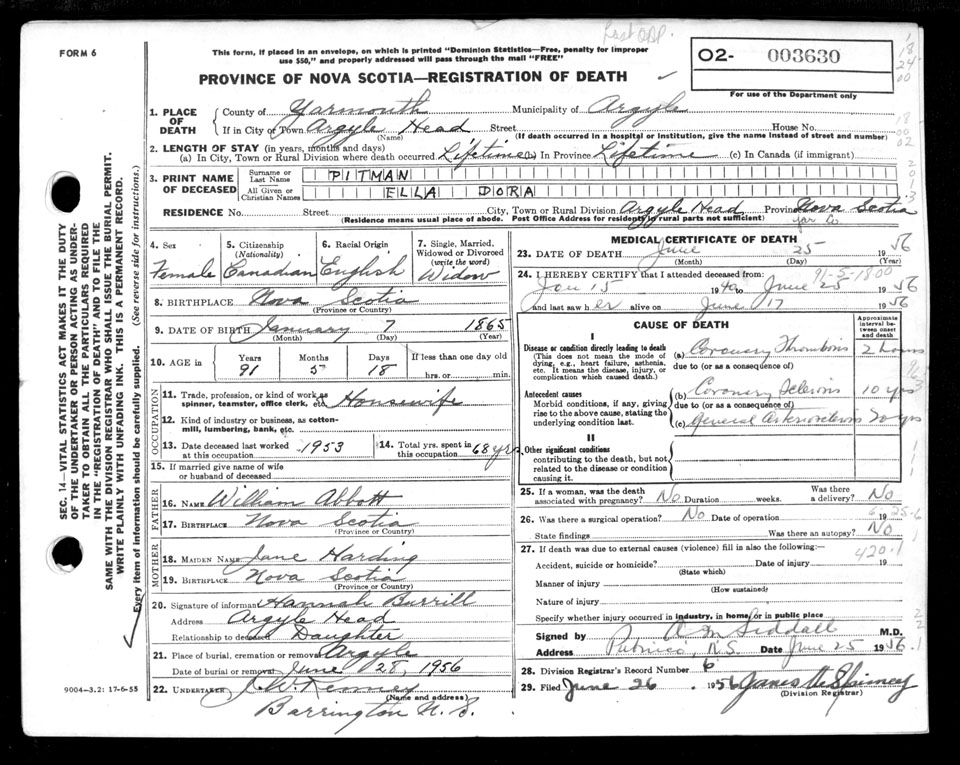 Last OAP.
FORM 6
This form, if placed in an envelope, on which is printed "Dominion Statistics—Free, penalty for improper
use $50," and properly addressed will pass through the mail "FREE"
PROVINCE OF NOVA SCOTIA—REGISTRATION OF DEATH
O2- 003630
For use of the Department only
1. PLACE OF DEATH
County of Yarmouth Municipality of Argyle
If in City or Town Argyle Head Street House No.
(Name) (If death occurred in a hospital or institution, give the name instead of street and number)
2. LENGTH OF STAY (in years, months and days)
(a) In City, Town or Rural Division where death occurred Lifetime (b) In Province Lifetime (c) In Canada (if immigrant)
3. PRINT NAME OF DECEASED
Surname or Last Name PITMAN
All Given or Christian Names ELLA DORA
RESIDENCE No. Street City, Town or Rural Division Argyle Head Province Nova Scotia
(Residence means usual place of abode. Post Office Address for residents in rural parts not sufficient) Yar Co
4. Sex Female
5. Citizenship (Nationality) Canadian
6. Racial Origin English
7. Single, Married, Widowed or Divorced (write the word) Widow
8. BIRTHPLACE Nova Scotia
(Province or Country)
9. DATE OF BIRTH January 7 1865
(Month) (Day) (Year)
10. AGE in Years 91 Months 5 Days 18 If less than one day old hrs. or min.
OCCUPATION
11. Trade, profession, or kind of work as spinner, teamster, office clerk, etc. Housewife
12. Kind of industry or business, as cotton-mill, lumbering, bank, etc.
13. Date deceased last worked at this occupation 1953
14. Total yrs. spent in this occupation 68 yrs
15. If married give name of wife or husband of deceased
FATHER
16. NAME William Abbott
17. BIRTHPLACE Nova Scotia
(Province or Country)
MOTHER
18. MAIDEN NAME Jane Harding
19. BIRTHPLACE Nova Scotia
(Province or Country)
20. Signature of informant Hannah Burrill
Address Argyle Head
Relationship to deceased Daughter
21. Place of burial, cremation or removal Argyle
Date of burial or removal June 28, 1956
22. UNDERTAKER
(Name and address)
Barrington N.S.
MEDICAL CERTIFICATE OF DEATH
23. DATE OF DEATH June 25 1956
(Month) (Day) (Year)
91-5-18 00
24. I HEREBY CERTIFY that I attended deceased from
Jan 15 1940 to June 25 1956
and last saw her alive on June 17 1956
CAUSE OF DEATH
Approximate interval between onset and death
I
Disease or condition directly leading to death
(This does not mean the mode of dying, e.g., heart failure, asthenia, etc. It means the disease, injury, or complication which caused death.)
(a) Coronary Thrombosis 2 hours
due to (or as a consequence of)
Antecedent causes
Morbid conditions, if any, giving rise to the above cause, stating the underlying condition last.
(b) Coronary Sclerosis 10 yrs
due to (or as a consequence of)
(c) General Arteriosclerosis 20 yrs
II
Other significant conditions
contributing to the death, but not related to the disease or condition causing it.
25. If a woman, was the death associated with pregnancy? No Duration weeks. Was there a delivery? No
26. Was there a surgical operation? No Date of operation 19
State findings Was there an autopsy? No
27. If death was due to external causes (violence) fill in also the following:—
420.1
Accident, suicide or homicide? Date of injury 19
(State which)
Manner of injury
(How sustained)
Nature of injury
Specify whether injury occurred in industry, in home, or in public place
Signed by A M Siddall M.D.
Address Pubnico, N.S. Date June 25 1956
28. Division Registrar's Record Number 6
29. Filed June 26 1956
(Division Registrar)
SEC. 14—VITAL STATISTICS ACT MAKES IT THE DUTY
OF THE UNDERTAKER OR PERSON ACTING AS UNDER-
TAKER TO OBTAIN ALL THE PARTICULARS REQUIRED
IN THE "REGISTRATION OF DEATH" AND TO FILE THE
SAME WITH THE DIVISION REGISTRAR WHO SHALL ISSUE THE BURIAL PERMIT.
WRITE PLAINLY WITH UNFADING INK. THIS IS A PERMANENT RECORD.
Every item of information should be carefully supplied. (See reverse side for instructions.)
9004—3.2: 17-6-55